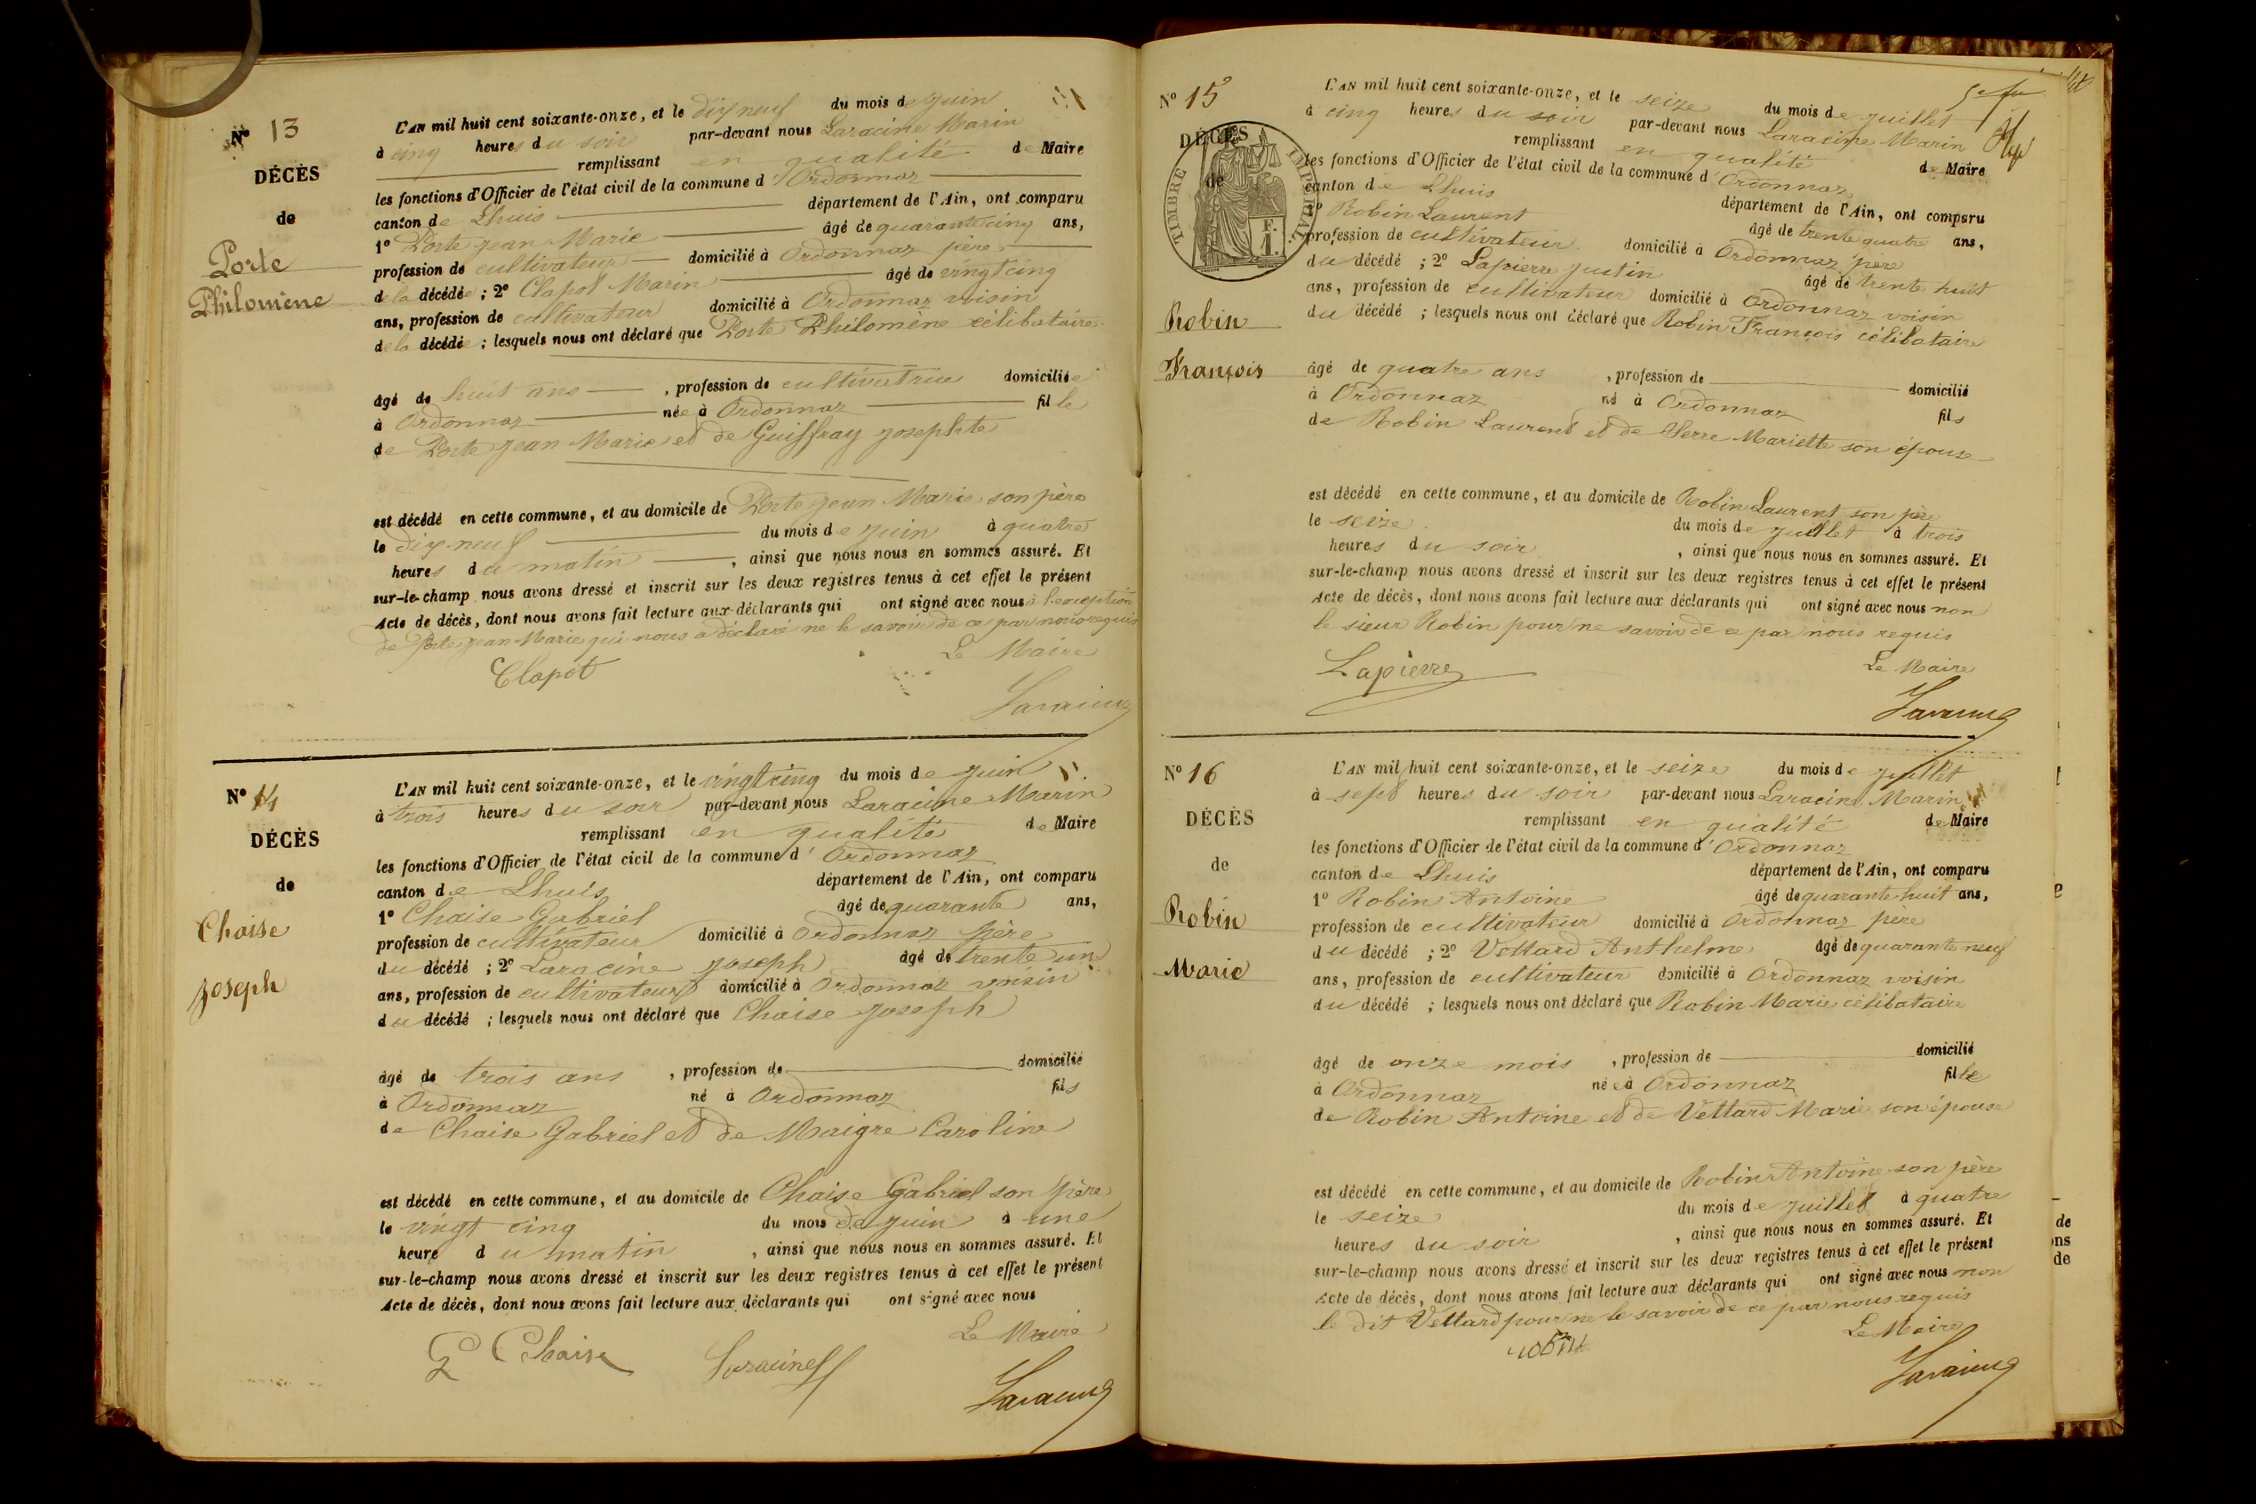 N° 13
DÉCÈS
de
Porte
Philomène
L'AN mil huit cent soixante-onze, et le dix neuf du mois de juin
à cinq heures du soir par-devant nous Laracine Marin
remplissant en qualité de Maire
les fonctions d'Officier de l'état civil de la commune d'Ordonnaz
canton de Lhuis département de l'Ain, ont comparu
1° Porte Jean Marie âgé de quarante cinq ans,
profession de cultivateur domicilié à Ordonnaz père
de la décédée ; 2° Clapot Marin âgé de vingt cinq
ans, profession de cultivateur domicilié à Ordonnaz voisin
de la décédée ; lesquels nous ont déclaré que Porte Philomène célibataire
âgé de huit ans , profession de cultivatrice domiciliée
à Ordonnaz née à Ordonnaz fille
de Porte Jean Marie et de Guiffray Josephte
est décédé en cette commune, et au domicile de Porte Jean Marie son père
le dix-neuf du mois de juin à quatre
heures du matin , ainsi que nous nous en sommes assuré. Et
sur-le-champ nous avons dressé et inscrit sur les deux registres tenus à cet effet le présent
Acte de décès, dont nous avons fait lecture aux déclarants qui ont signé avec nous à l'exception
de Porte Jean-Marie qui nous a déclaré ne le savoir de ce par nous requis
Le Maire
Clapot
Laracine
N° 14
DÉCÈS
de
Chaise
Joseph
L'AN mil huit cent soixante-onze, et le vingt cinq du mois de juin
à trois heures du soir par-devant nous Laracine Marin
remplissant en qualité de Maire
les fonctions d'Officier de l'état civil de la commune d'Ordonnaz
canton de Lhuis département de l'Ain, ont comparu
1° Chaise Gabriel âgé de quarante ans,
profession de cultivateur domicilié à Ordonnaz père
du décédé ; 2° Laracine Joseph âgé de trente un
ans, profession de cultivateur domicilié à Ordonnaz voisin
du décédé ; lesquels nous ont déclaré que Chaise Joseph
âgé de trois ans , profession de domicilié
à Ordonnaz né à Ordonnaz fils
de Chaise Gabriel et de Maigre Caroline
est décédé en cette commune, et au domicile de Chaise Gabriel son père
le vingt cinq du mois de juin à une
heure du matin , ainsi que nous nous en sommes assuré. Et
sur-le-champ nous avons dressé et inscrit sur les deux registres tenus à cet effet le présent
Acte de décès, dont nous avons fait lecture aux déclarants qui ont signé avec nous
Le Maire
G Chaise Laracine
Laracine
N° 15
DÉCÈS
de
TIMBRE IMPÉRIAL
F.
1.
Robin
François
L'AN mil huit cent soixante-onze, et le seize du mois de juillet
à cinq heures du soir par-devant nous Laracine Marin
remplissant en qualité de Maire
les fonctions d'Officier de l'état civil de la commune d'Ordonnaz
canton de Lhuis département de l'Ain, ont comparu
1° Robin Laurent âgé de trente quatre ans,
profession de cultivateur domicilié à Ordonnaz père
du décédé ; 2° Lapierre Justin âgé de trente huit
ans, profession de cultivateur domicilié à Ordonnaz voisin
du décédé ; lesquels nous ont déclaré que Robin François célibataire
âgé de quatre ans , profession de domicilié
à Ordonnaz né à Ordonnaz fils
de Robin Laurent et de Serre Mariette son épouse
est décédé en cette commune, et au domicile de Robin Laurent son père
le seize du mois de juillet à trois
heures du soir , ainsi que nous nous en sommes assuré. Et
sur-le-champ nous avons dressé et inscrit sur les deux registres tenus à cet effet le présent
Acte de décès, dont nous avons fait lecture aux déclarants qui ont signé avec nous non
le sieur Robin pour ne savoir de ce par nous requis
Lapierre Le Maire
Laracine
N° 16
DÉCÈS
de
Robin
Marie
L'AN mil huit cent soixante-onze, et le seize du mois de juillet
à sept heures du soir par-devant nous Laracine Marin
remplissant en qualité de Maire
les fonctions d'Officier de l'état civil de la commune d'Ordonnaz
canton de Lhuis département de l'Ain, ont comparu
1° Robin Antoine âgé de quarante huit ans,
profession de cultivateur domicilié à Ordonnaz père
du décédé ; 2° Vettard Anthelme âgé de quarante neuf
ans, profession de cultivateur domicilié à Ordonnaz voisin
du décédé ; lesquels nous ont déclaré que Robin Marie célibataire
âgé de onze mois , profession de domicilié
à Ordonnaz née à Ordonnaz fille
de Robin Antoine et de Vettard Marie son épouse
est décédé en cette commune, et au domicile de Robin Antoine son père
le seize du mois de juillet à quatre
heures du soir , ainsi que nous nous en sommes assuré. Et
sur-le-champ nous avons dressé et inscrit sur les deux registres tenus à cet effet le présent
Acte de décès, dont nous avons fait lecture aux déclarants qui ont signé avec nous non
le dit Vettard pour ne le savoir de ce par nous requis
Le Maire
robin
Laracine
de
ons
de